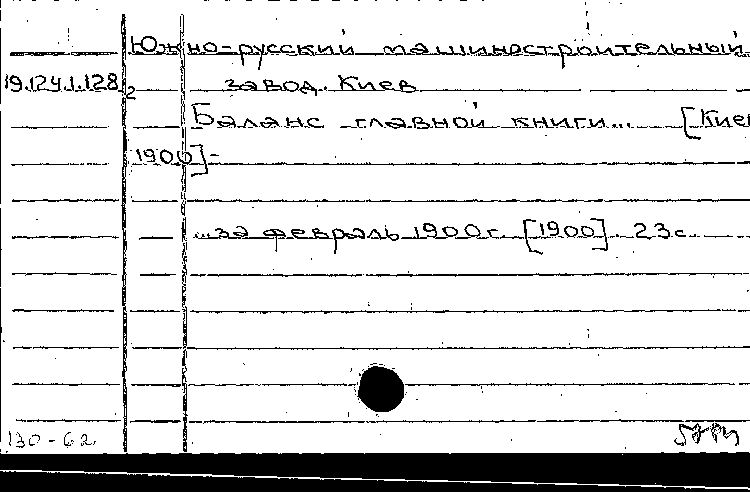 Южно-русский машиностроительный
19.124.1.128 2 завод. Киев
Баланс главной книги... [Киев
1900]-
...за февраль 1900 г. [1900]. 23 с.
130-62